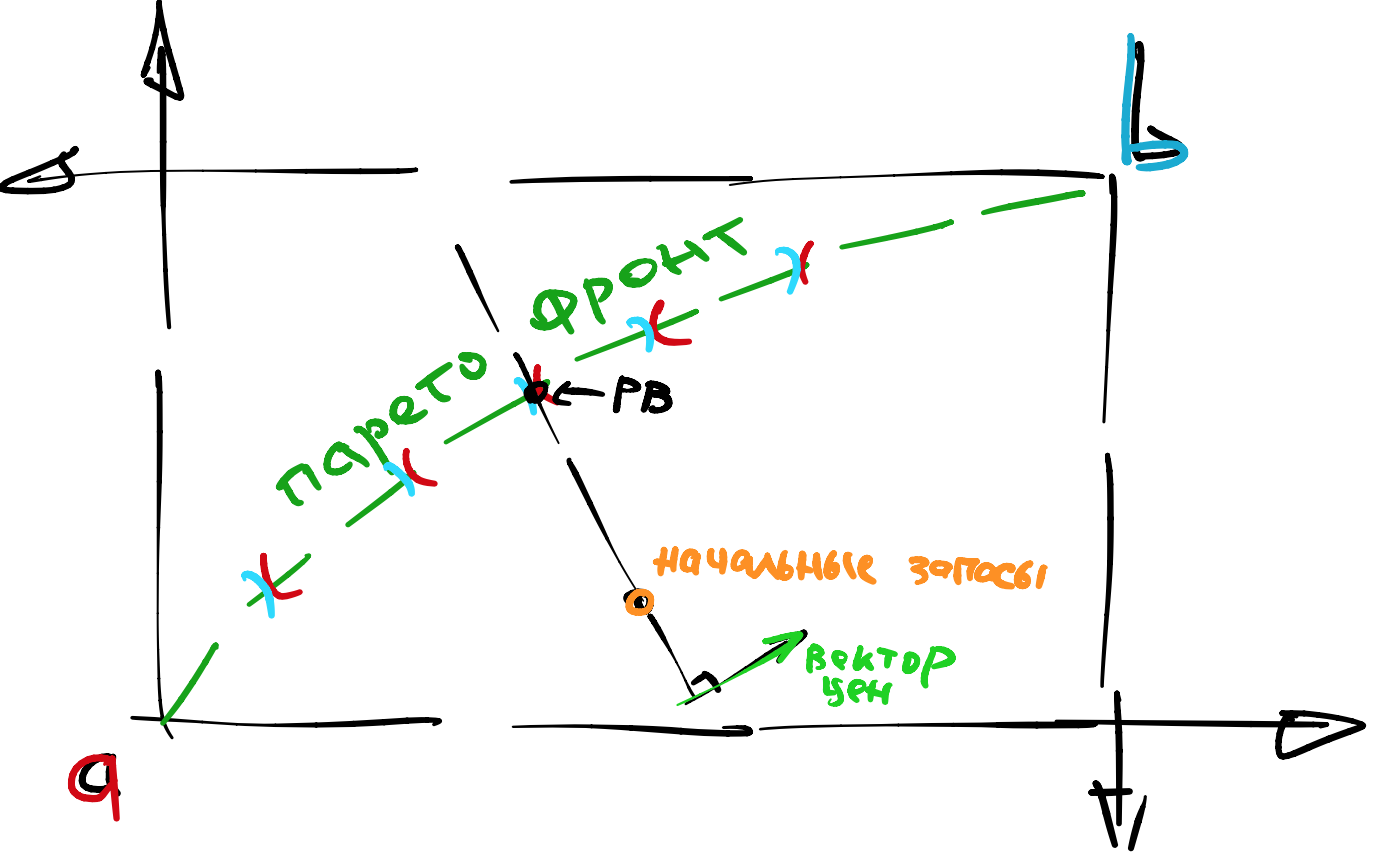 b
ПАРЕТО ФРОНТ
← РВ
НАЧАЛЬНЫЕ ЗАПАСЫ
ВЕКТОР
ЦЕН
a